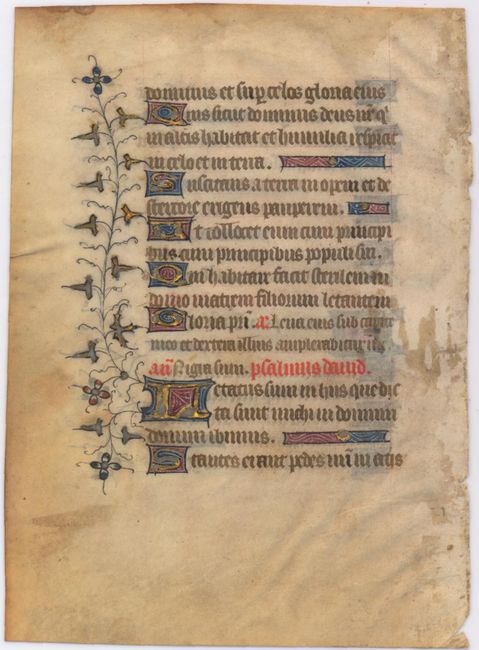 dominus et sup celos gloria eius
Quis sicut dominus deus nr q
in altis habitat et humilia respicit
in celo et in terra.
Suscitans a terra inopem et de
stercore erigens pauperem.
Ut collocet eum cum principi
bus cum principibus populi sui.
Qui habitare facit sterilem in
domo matrem filiorum letantem
Gloria pri. Leua eius sub capite
meo et dextera illius amplexabitur me
an Nigra sum. psalmus dauid.
Letatus sum in hiis que dic
ta sunt michi in domum
domini ibimus.
Stantes erant pedes nri in atriis